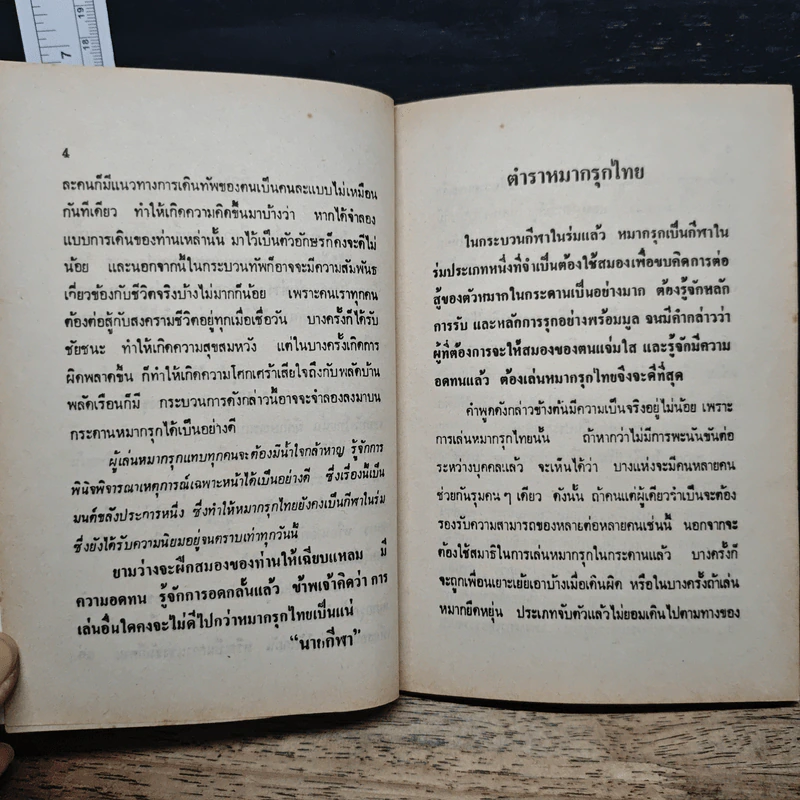 7
18
19
4
ละคนก็มีแนวทางการเดินทัพของตนเป็นคนละแบบไม่เหมือน
กันทีเดียว ทำให้เกิดความคิดขึ้นมาบ้างว่า หากได้จำลอง
แบบการเดินของท่านเหล่านั้น มาไว้เป็นตัวอักษรก็คงจะดีไม่
น้อย และนอกจากนี้ในกระบวนทัพก็อาจจะมีความสัมพันธ
เกี่ยวข้องกับชีวิตจริงบ้างไม่มากก็น้อย เพราะคนเราทุกคน
ต้องต่อสู้กับสงครามชีวิตอยู่ทุกเมื่อเชื่อวัน บางครั้งก็ได้รับ
ชัยชนะ ทำให้เกิดความสุขสมหวัง แต่ในบางครั้งเกิดการ
ผิดพลาดขึ้น ก็ทำให้เกิดความโศกเศร้าเสียใจถึงกับพลัดบ้าน
พลัดเรือนก็มี กระบวนการดังกล่าวนี้อาจจะจำลองลงมาบน
กระดานหมากรุกได้เป็นอย่างดี
ผู้เล่นหมากรุกแทบทุกคนจะต้องมีน้ำใจกล้าหาญ รู้จักการ
พินิจพิจารณาเหตุการณ์เฉพาะหน้าได้เป็นอย่างดี ซึ่งเรื่องนี้เป็น
มนต์ขลังประการหนึ่ง ซึ่งทำให้หมากรุกไทยยังคงเป็นกีฬาในร่ม
ซึ่งยังได้รับความนิยมอยู่จนตราบเท่าทุกวันนี้
ยามว่างจะฝึกสมองของท่านให้เฉียบแหลม มี
ความอดทน รู้จักการอดกลั้นแล้ว ข้าพเจ้าคิดว่า การ
เล่นอื่นใดคงจะไม่ดีไปกว่าหมากรุกไทยเป็นแน่
“นายกีฬา”
ตำราหมากรุกไทย
ในกระบวนกีฬาในร่มแล้ว หมากรุกเป็นกีฬาใน
ร่มประเภทหนึ่งที่จำเป็นต้องใช้สมองเพื่อขบคิดการต่อ
สู้ของตัวหมากในกระดานเป็นอย่างมาก ต้องรู้จักหลัก
การรับ และหลักการรุกอย่างพร้อมมูล จนมีคำกล่าวว่า
ผู้ที่ต้องการจะให้สมองของตนแจ่มใส และรู้จักมีความ
อดทนแล้ว ต้องเล่นหมากรุกไทยจึงจะดีที่สุด
คำพูดดังกล่าวข้างต้นมีความเป็นจริงอยู่ไม่น้อย เพราะ
การเล่นหมากรุกไทยนั้น ถ้าหากว่าไม่มีการพะนันขันต่อ
ระหว่างบุคคลแล้ว จะเห็นได้ว่า บางแห่งจะมีคนหลายคน
ช่วยกันรุมคน ๆ เดียว ดังนั้น ถ้าคนแต่ผู้เดียวจำเป็นจะต้อง
รองรับความสามารถของหลายต่อหลายคนเช่นนี้ นอกจากจะ
ต้องใช้สมาธิในการเล่นหมากรุกในกระดานแล้ว บางครั้งก็
จะถูกเพื่อนเยาะเย้ยเอาบ้างเมื่อเดินผิด หรือในบางครั้งถ้าเล่น
หมากยืดหยุ่น ประเภทจับตัวแล้วไม่ยอมเดินไปตามทางของ